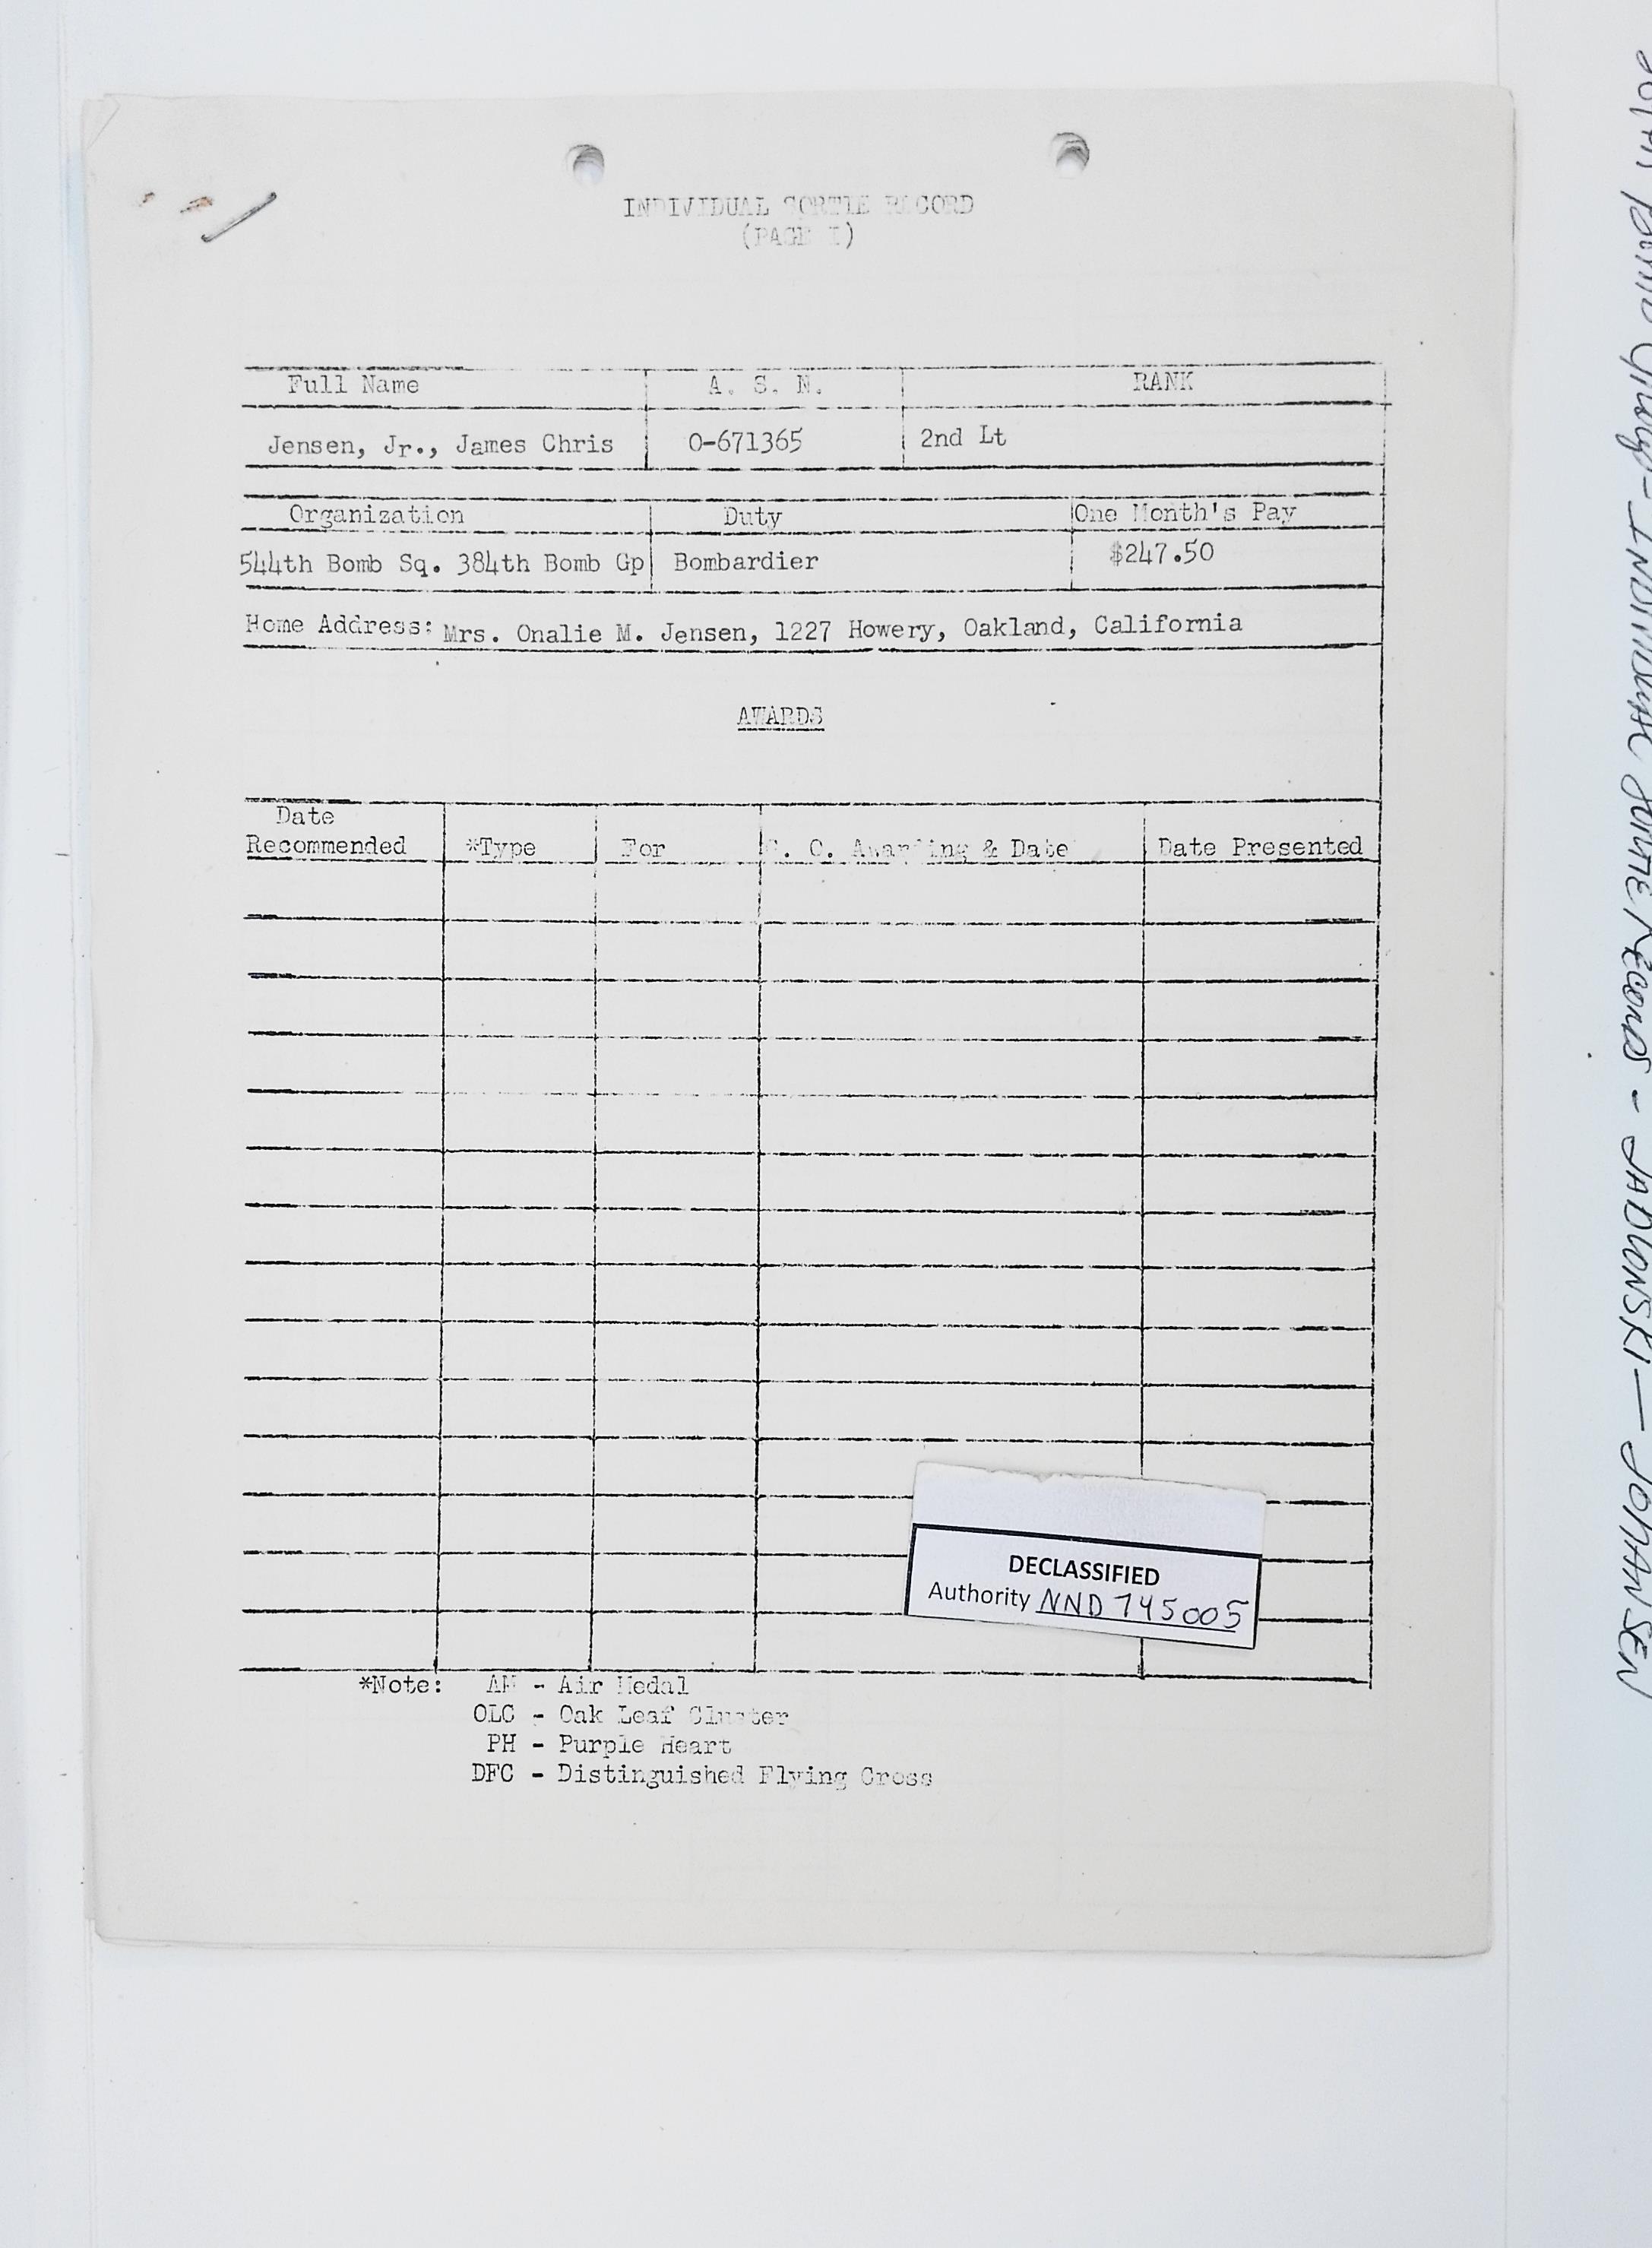 INDIVIDUAL SORTIE RECORD
(PAGE I)
Full Name A. S. N. RANK
Jensen, Jr., James Chris 0-671365 2nd Lt
Organization Duty One Month's Pay
544th Bomb Sq. 384th Bomb Gp Bombardier $247.50
Home Address: Mrs. Onalie M. Jensen, 1227 Howery, Oakland, California
AWARDS
Date
Recommended *Type For G. O. Awarding & Date Date Presented
DECLASSIFIED
Authority NND 745005
*Note: AM - Air Medal
OLC - Oak Leaf Cluster
PH - Purple Heart
DFC - Distinguished Flying Cross
Bomb Group - INDIVIDUAL SORTIE RECORDS - JABLONSKI - JOHANSEN